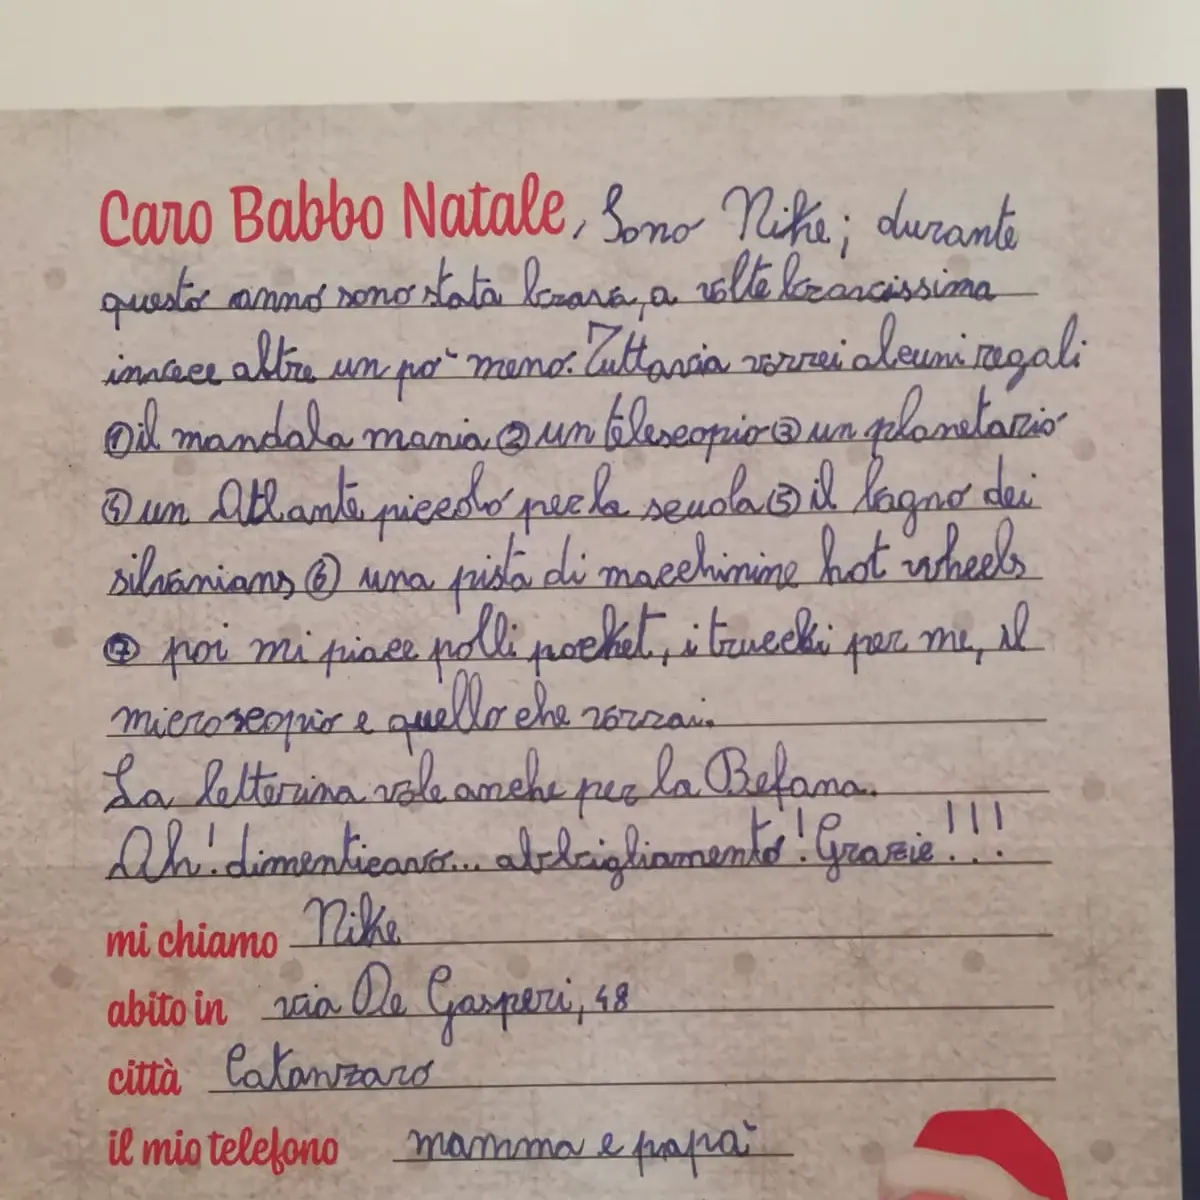 Caro Babbo Natale, Sono Nike; durante
questo anno sono stata brava, a volte bravissima
invece altre un po' meno. Tuttavia vorrei alcuni regali
①il mandala mania ② un telescopio ③ un planetario
④ un Atlante piccolo per la scuola ⑤ il bagno dei
silvanians ⑥ una pista di macchinine hot wheels
⑦ poi mi piace polli pocket, i trucchi per me, il
microscopio e quello che vorrai.
La letterina vale anche per la Befana.
Ah! dimenticavo... abbigliamento! Grazie!!!
mi chiamo Nike
abito in via De Gasperi, 48
città Catanzaro
il mio telefono mamma e papà